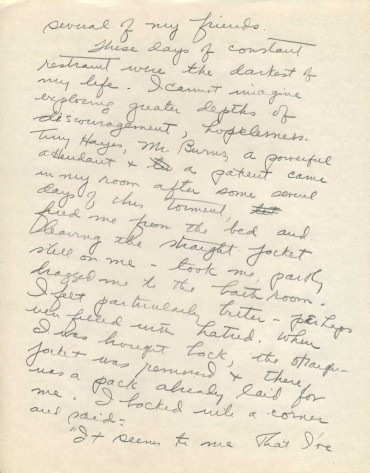 several of my friends.
These days of constant
restraint were the darkest of
my life. I cannot imagine
exploring greater depths of
discouragement, hopelessness.
Tiny Hayes, Mr. Burns, a powerful
attendant & a patient came
in my room after some several
days of this torment,
freed me from the bed and
leaving the straight jacket
still on me - took me, partly
dragged me to the bath room.
I felt particularly bitter - perhaps
even filled with hatred. When
I was brought back, the straight-
jacket was removed & there
was a pack already laid for
me. I backed into a corner
and said:
"It seems to me that I've